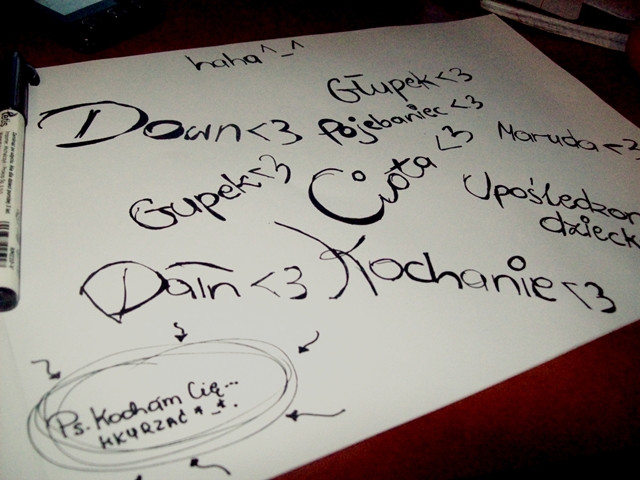 haha^_^
Głupek<3
Down<3
pojebaniec<3
Maruda<3
Ciota <3
Gupek<3
Upośledzon
dzieck
Dałn<3
Kochanie<3
Ps. Kocham Cię...
WKURZAĆ *_*.